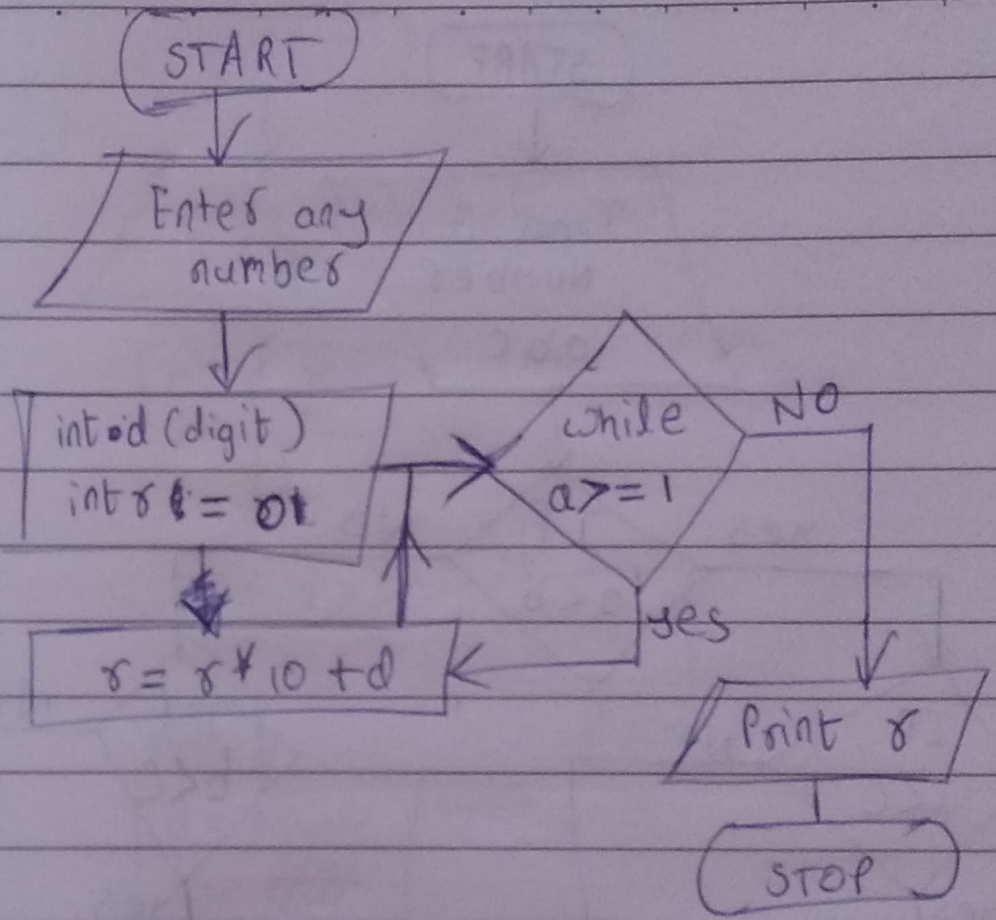 START
Enter any
number
int d (digit)
int r = 0
while
a>=1
NO
yes
r = r * 10 + d
Print r
STOP